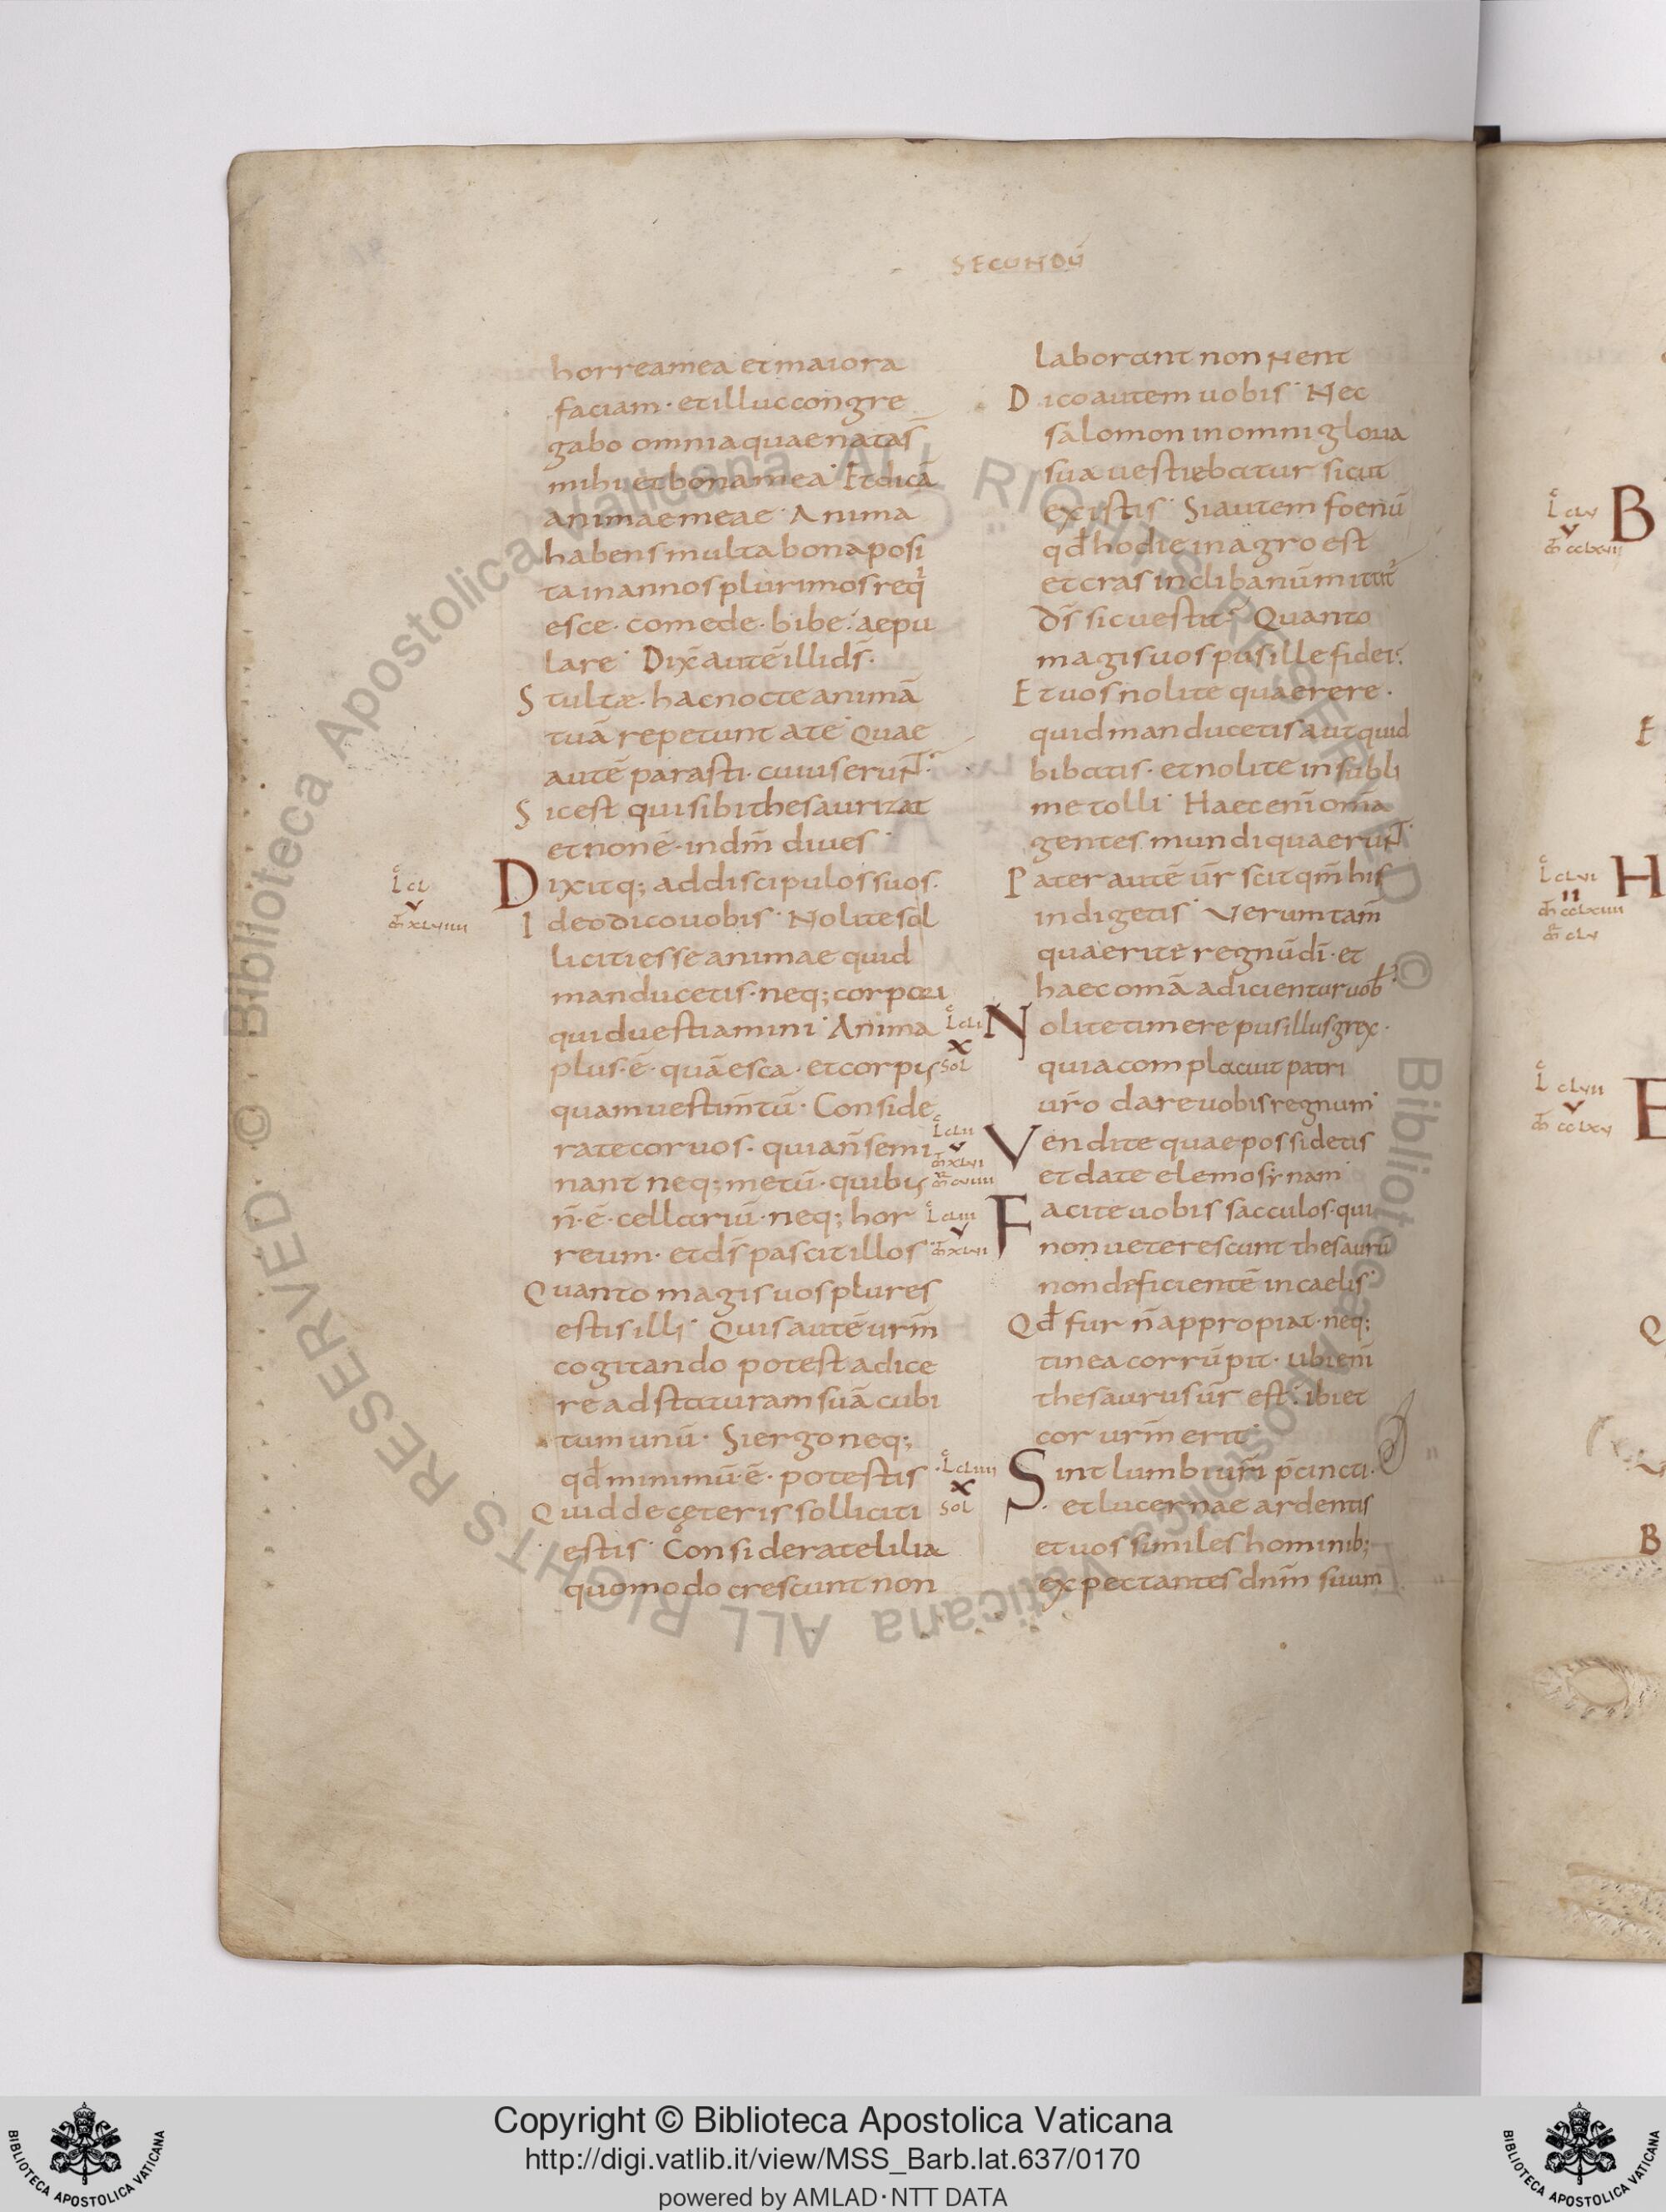 SECUNDŪ
horrea mea et maiora
faciam · et illuc congre
gabo omnia quae nata s̄
mihi et bona mea · Et dicā
animae meae · Anima
habens multa bona posi
ta in annos plurimos req
esce · comede · bibe · aepu
lare · Dix̄ autē illi ds̄ ·
Stultæ · hac nocte animā
tuā repetunt a te · Quae
autē parasti · cuius erunt ·
Sic est qui sibi thesaurizat
et non ē · in dm̄ diues ·
Dixitq; ad discipulos suos ·
Ideo dico uobis · Nolite sol
liciti esse animae quid
manducetis · neq; corpori
quid uestiamini · Anima
plus · ē · quā esca · et corpus
quam uestim̄tū · Conside
rate coruos · quia n̄ semi
nant neq; metū · quibus
n̄ · ē · cellariū · neq; hor
reum · et ds̄ pascit illos ·
Quanto magis uos plures
estis illi · Quis autē urm̄
cogitando potest adice
re ad staturam suā cubi
tum unū · Si ergo neq;
qd̄ minimū · ē · potestis
Quid de cęteris solliciti
estis · Considerate lilia
quomodo crescunt non
L̄ cL
v
m̄ xLviiii
laborant non nent
Dico autem uobis · Nec
salomon in omni gloria
sua uestiebatur sicut
ex istis · Si autem foenū
qd̄ hodie in agro est
et cras in clibanū mittit
ds̄ sic uestit · Quanto
magis uos pusille fidei ·
Et uos nolite quaerere ·
quid manducetis aut quid
bibatis · et nolite in subli
me tolli · Haec enī om̄ia
gentes mundi quaerunt ·
Pater autē ūr scit qm̄ his
indigetis · Verumtam̄
quaerite regnū dī · et
haec omā adicientur uob ·
Nolite timere pusillus grex ·
quia complacuit patri
ur̄o dare uobis regnum ·
Vendite quae possidetis
et date elemosynam ·
Facite uobis sacculos · qui
non ueterescunt thesaurū
non deficientē in caelis ·
Qd̄ fur n̄ appropiat · neq;
tinea corrūpit · ubi enī
thesaurus ūr est · ibi et
cor urm̄ erit ·
Sint lumbi urī p̄cincti ·
et lucernae ardentis
et uos similes hominib;
expectantes dnm̄ suum
L̄ cLi
x
Sol
L̄ cLii
v
m̄ xLvi
L̄ cLiii
v
m̄ xLvi
L̄ cLiiii
x
Sol
L̄ cLv
v
B
E
L̄ cLvi
II
H
m̄ cLv
L̄ cLvii
v
m̄ ccLxv
E
Q
B
© Biblioteca Apostolica Vaticana ALL RIGHTS RESERVED © Biblioteca Apostolica Vaticana ALL RIGHTS RESERVED
BIBLIOTECA APOSTOLICA VATICANA
Copyright © Biblioteca Apostolica Vaticana
http://digi.vatlib.it/view/MSS_Barb.lat.637/0170
powered by AMLAD·NTT DATA
BIBLIOTECA APOSTOLICA VATICANA